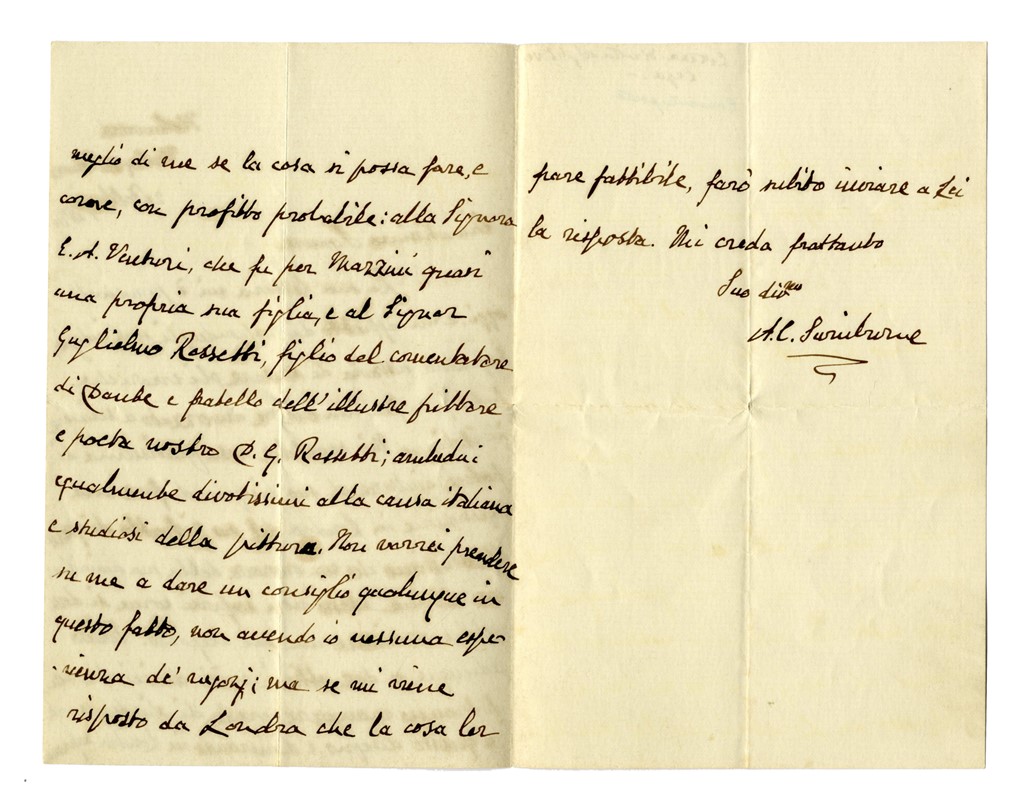 meglio di me se la cosa si possa fare, e
come, con profitto probabile: alla Signora
E. A. Venturi, che fu per Mazzini quasi
una propria sua figlia, e al Signor
Guglielmo Rossetti, figlio del comentatore
di Dante e fratello dell'illustre pittore
e poeta nostro D. G. Rossetti; ambedui
egualmente divotissimi alla causa italiana
e studiosi della pittura. Non vorrei prendere
su me a dare un consiglio qualunque in
questo fatto, non avendo io nessuna espe-
-rienza de' negozj; ma se mi viene
risposto da Londra che la cosa lor
pare fattibile, farò subito inviare a Lei
la risposta. Mi creda frattanto
Suo div.mo
A. C. Swinburne